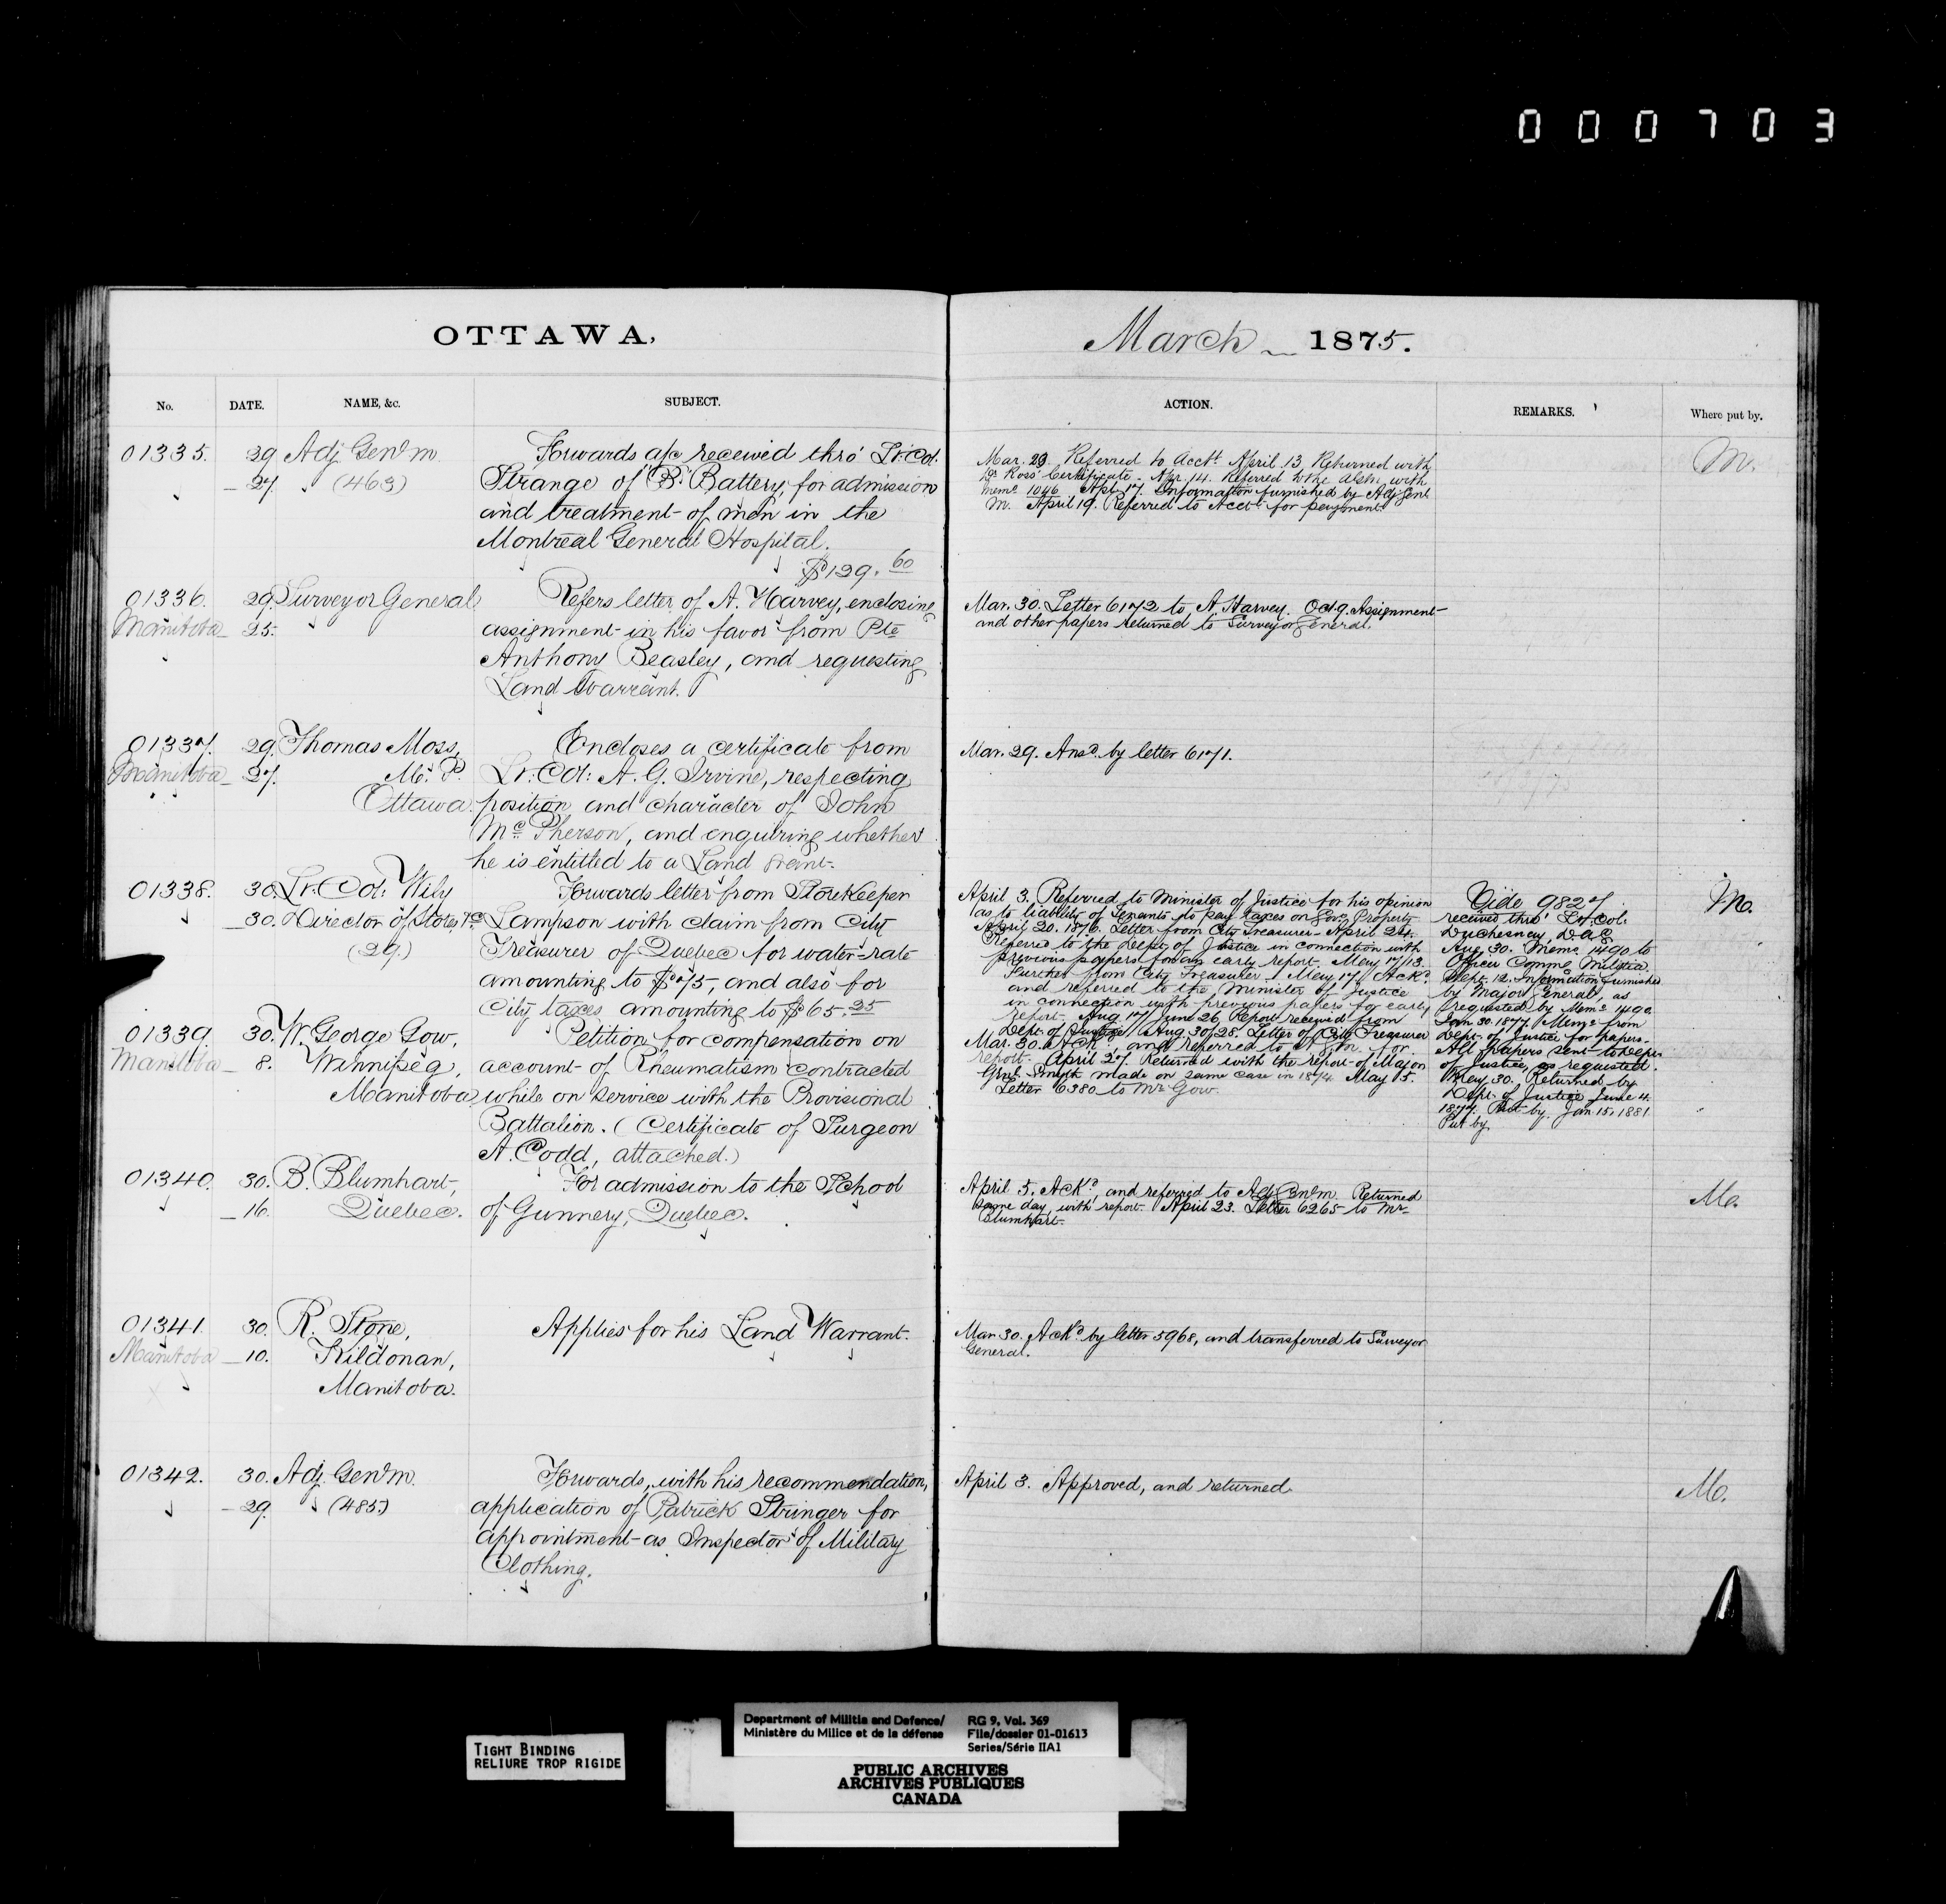 000703
OTTAWA,
March 1875.
No.
DATE.
NAME, &c.
SUBJECT.
ACTION.
REMARKS.
Where put by.
01335.
29
27
Adj Genl m.
(463)
Forwards a/c received thro' Lt: Col.
Strange of "B" Battery, for admission
and treatment of men in the
Montreal General Hospital.
$129.60
Mar. 29. Referred to Acct. April 13 Returned with
Dr Ross' Certificate. Apr. 14. Referred to the AGM. with
Memo 1046 Apl. 17. Information furnished by Adj Genl
M. April 19. Referred to Acct. for payment.
M.
01336.
Manitoba
29.
25.
Surveyor General
Refers letter of A. Harvey, enclosing
assignment in his favor from Pte
Anthony Beasley, and requesting
Land Warrant.
Mar. 30. Letter 6172 to A. Harvey. Orig. Assignment
and other papers returned to Surveyor General.
01337.
Manitoba
29.
27.
Thomas Moss,
M. P.
Ottawa.
Encloses a certificate from
Lt. Col: A. G. Irvine, respecting
position and character of John
McPherson, and enquiring whether
he is entitled to a Land Grant.
Mar. 29. Ansd. by letter 6171.
01338.
30.
30.
Lt. Col: Wily
Director of Stores, &c
(29.)
Forwards letter from Storekeeper
Lampson with claim from City
Treasurer of Quebec for water-rate
amounting to $75, and also for
City taxes amounting to $65.25
April 3. Referred to Minister of Justice for his opinion
as to liability of Tenants to pay taxes on Govt. Property
April 20. 1876. Letter from City Treasurer. April 24.
Referred to the Dept. of Justice in connection with
previous papers for an early report. May 17/13.
Further from City Treasurer. May 17. Ackd.
and referred to the Minister of Justice
in connection with previous papers for early
report. Aug 17/June 26. Report received from
Dept. of Justice. Aug 30/28. Letter of City Treasurer
Vide 9827
received thro' Lt. Col:
Duchesnay D.A.G.
Aug. 30. Memo. 1490 to
Officer Commg Militia.
Sept. 12. Information furnished
by Major General, as
requested by Memo 1490.
Jan 30. 1877. Memo from
Dept. of Justice for papers.
All papers sent to Dept.
of Justice, as requested.
May 30. Returned by
Dept. of Justice June 4.
1877. Put by. Jan. 15. 1881.
Put by.
M.
01339.
Manitoba
30.
8.
W. George Gow,
Winnipeg,
Manitoba,
Petition for compensation on
account of Rheumatism contracted
while on service with the Provisional
Battalion. (Certificate of Surgeon
A. Codd, attached.)
Mar. 30. Ackd. and referred to A G. m. for
report. April 27. Returned with the report of Major
Genl. Smyth made on same case in 1874. May 5.
Letter 6380 to Mr Gow.
01340.
30.
16.
B. Blumhart,
Quebec.
For admission to the School
of Gunnery, Quebec.
April 5. Ackd., and referred to Adj Genl m. Returned
same day, with report. April 23. Letter 6265 to Mr
Blumhart.
M.
01341.
Manitoba
30.
10.
R. Stone,
Kildonan,
Manitoba.
Applies for his Land Warrant.
Mar 30. Ackd. by letter 5968, and transferred to Surveyor
General.
01342.
30.
29.
Adj. Genl m.
(485)
Forwards, with his recommendation,
application of Patrick Stringer for
appointment as Inspector of Military
Clothing.
April 3. Approved, and returned.
M.
TIGHT BINDING
RELIURE TROP RIGIDE
Department of Militia and Defence/
Ministère du Milice et de la défense
RG 9, Vol. 369
File/dossier 01-01613
Series/Série IIA1
PUBLIC ARCHIVES
ARCHIVES PUBLIQUES
CANADA